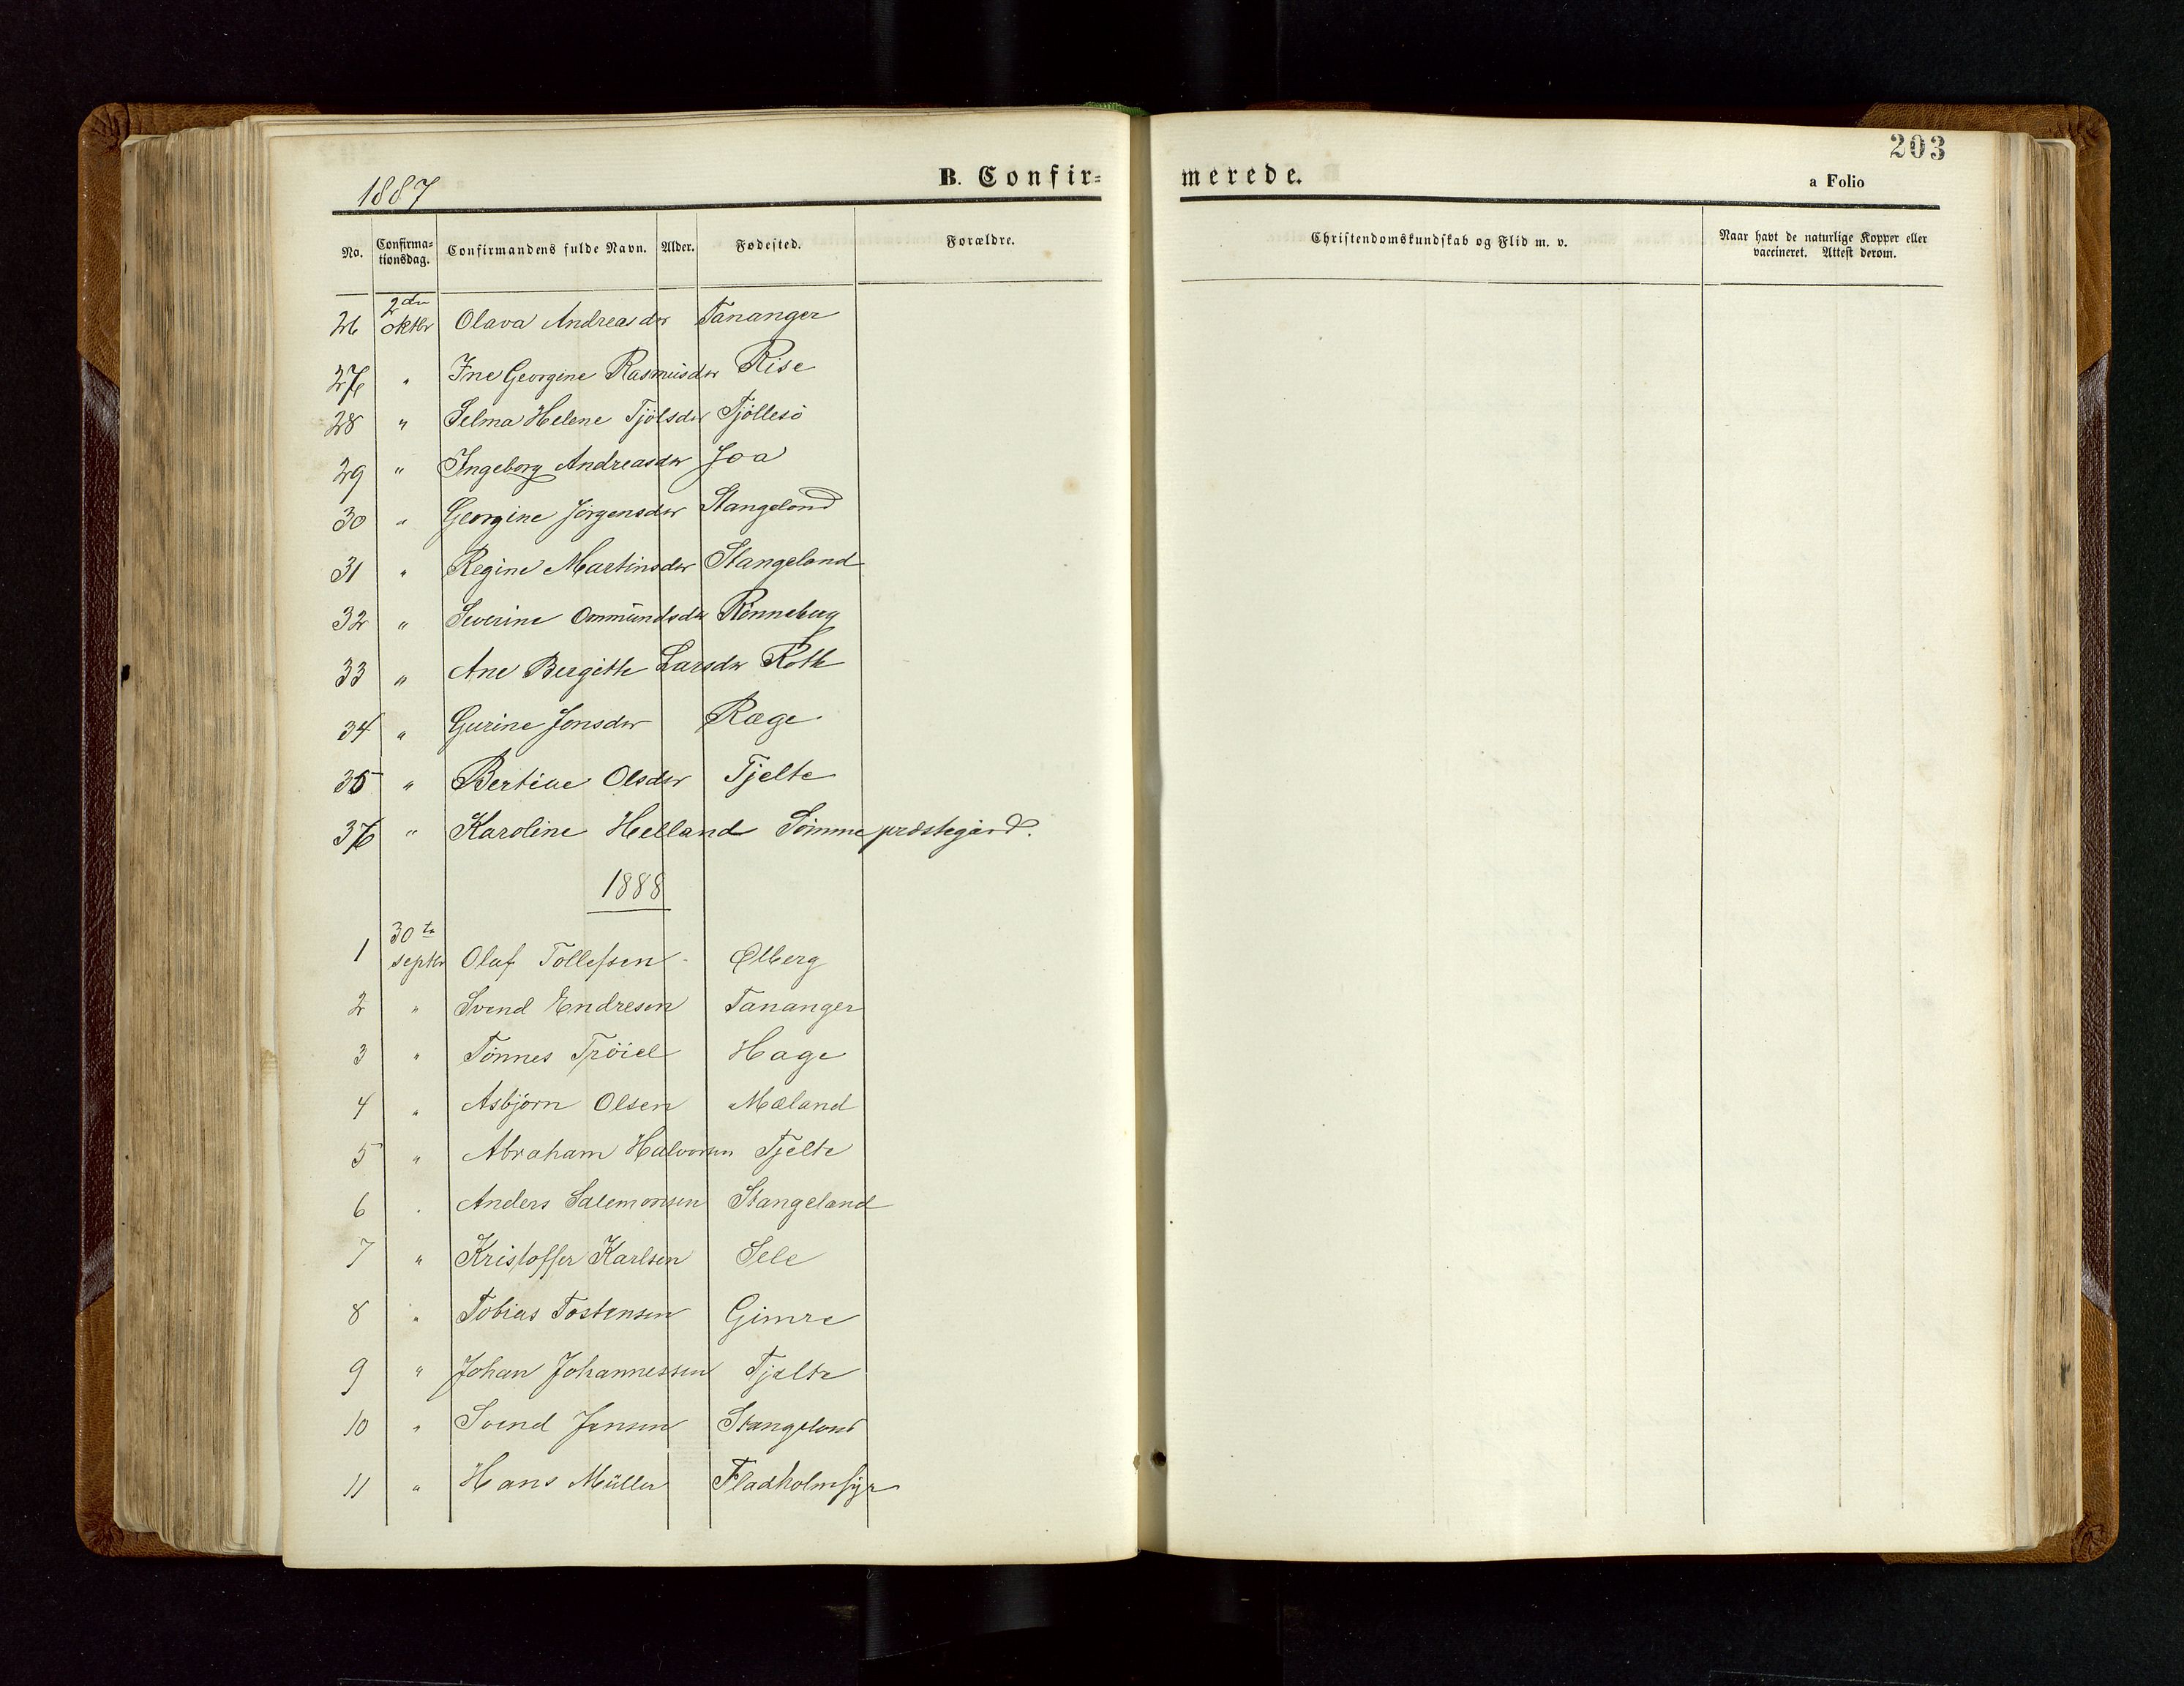 203
1887
B. Confir=
merede.
a Folio
No.
Confirma=
tionsdag.
Confirmandens fulde Navn.
Alder.
Fødested.
Forældre.
Christendomskundskab og Flid m. v.
Naar havt de naturlige Kopper eller
vaccineret. Attest derom.
26 2den oktbr Olava Andreasdtr Tananger
27 " Ine Georgine Rasmusdtr Rise
28 " Selma Helene Tjölsdtr
29 " Ingeborg Andreasdtr Joa
30 " Georgine Jörgensdtr Stangeland
31 " Regine Martinsdtr Stangeland
32 " Severine Ommundsdtr Rönneberg
33 " Ane Bergitte Larsdtr Roth
34 " Gurine Jonsdtr Ræge
35 " Bertine Olsdtr Tjelte
36 " Karoline Helland Sömme præstegård.
1888
1 30te septbr Olaf Tollefsen Ølberg
2 " Svend Endresen Tananger
3 " Tönnes Tröiel Hage
4 " Asbjörn Olsen Mæland
5 " Abraham Halvorsen Tjelte
6 " Anders Salemonsen Stangeland
7 " Kristoffer Karlsen Sele
8 " Tobias Tostensen Gimre
9 " Johan Johannessen Tjelte
10 " Svend Jensen Stangeland
11 " Hans Müller Fladholmfyr